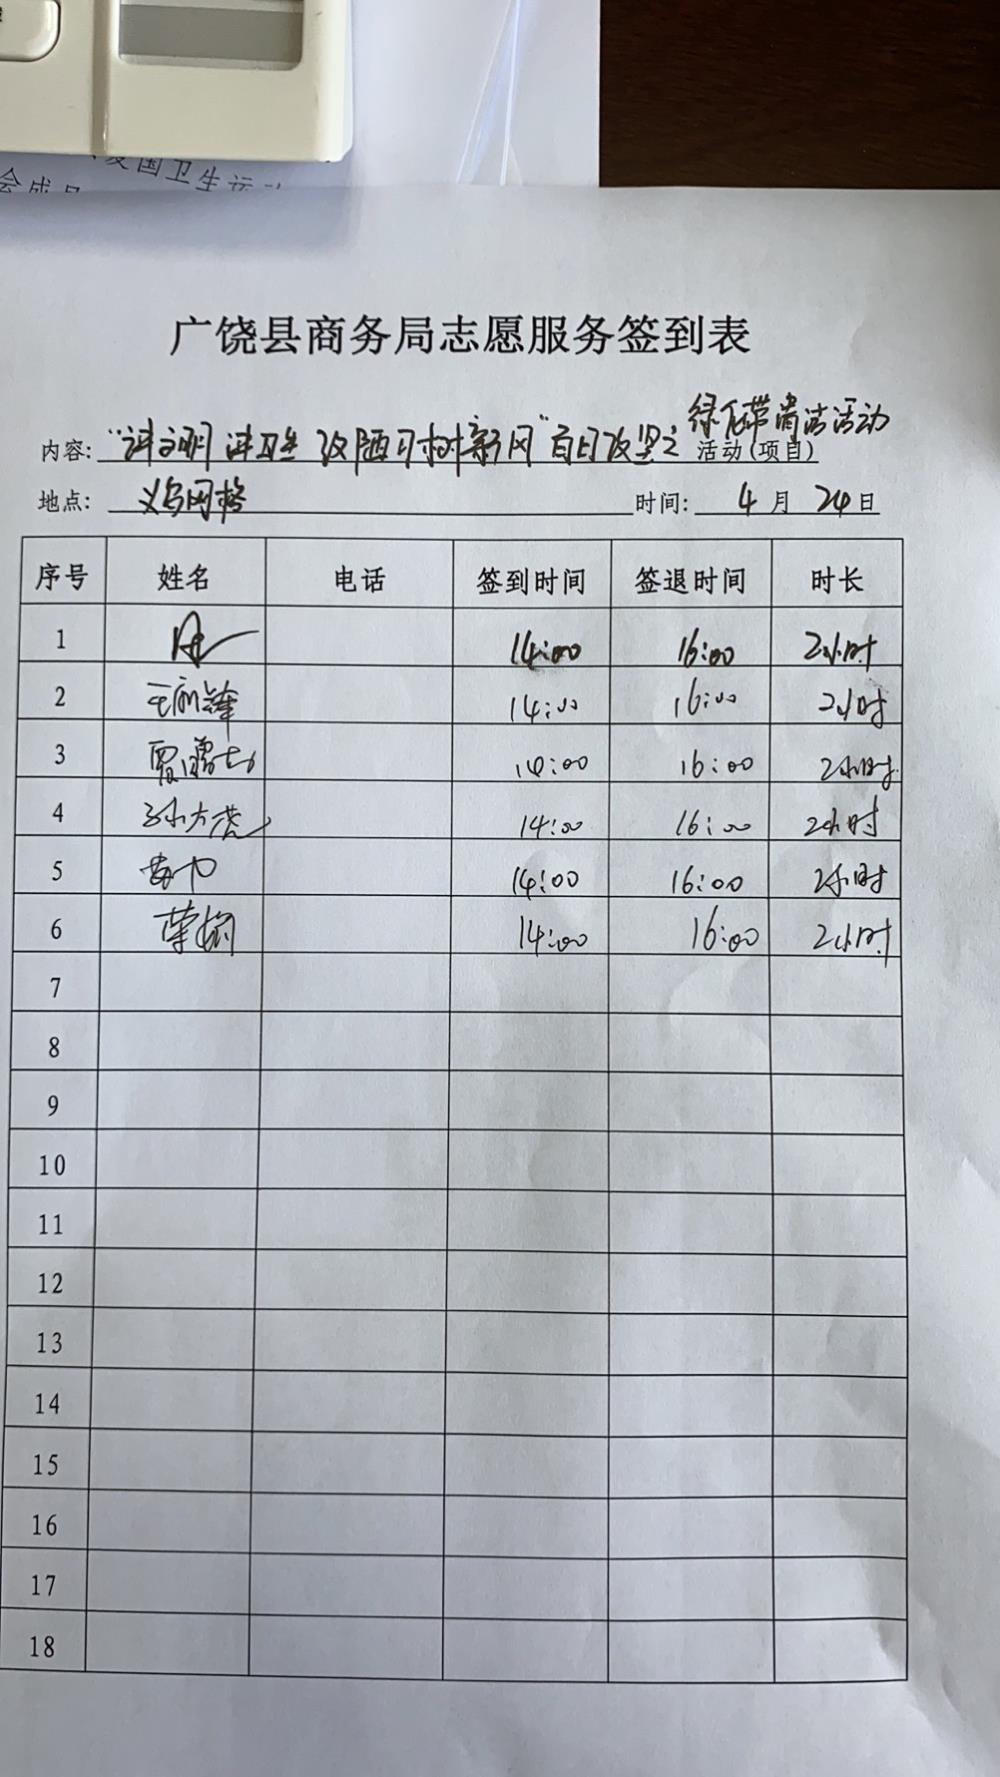 爱国卫生运动
会成员
广饶县商务局志愿服务签到表
绿化带清洁活动
内容: "讲文明 讲卫生 改陋习 树新风"百日攻坚之 活动(项目)
地点: 义乌网格 时间: 4月24日
序号 姓名 电话 签到时间 签退时间 时长
1 14:00 16:00 2小时
2 14:00 16:00 2小时
3 14:00 16:00 2小时
4 14:00 16:00 2小时
5 14:00 16:00 2小时
6 14:00 16:00 2小时
7
8
9
10
11
12
13
14
15
16
17
18